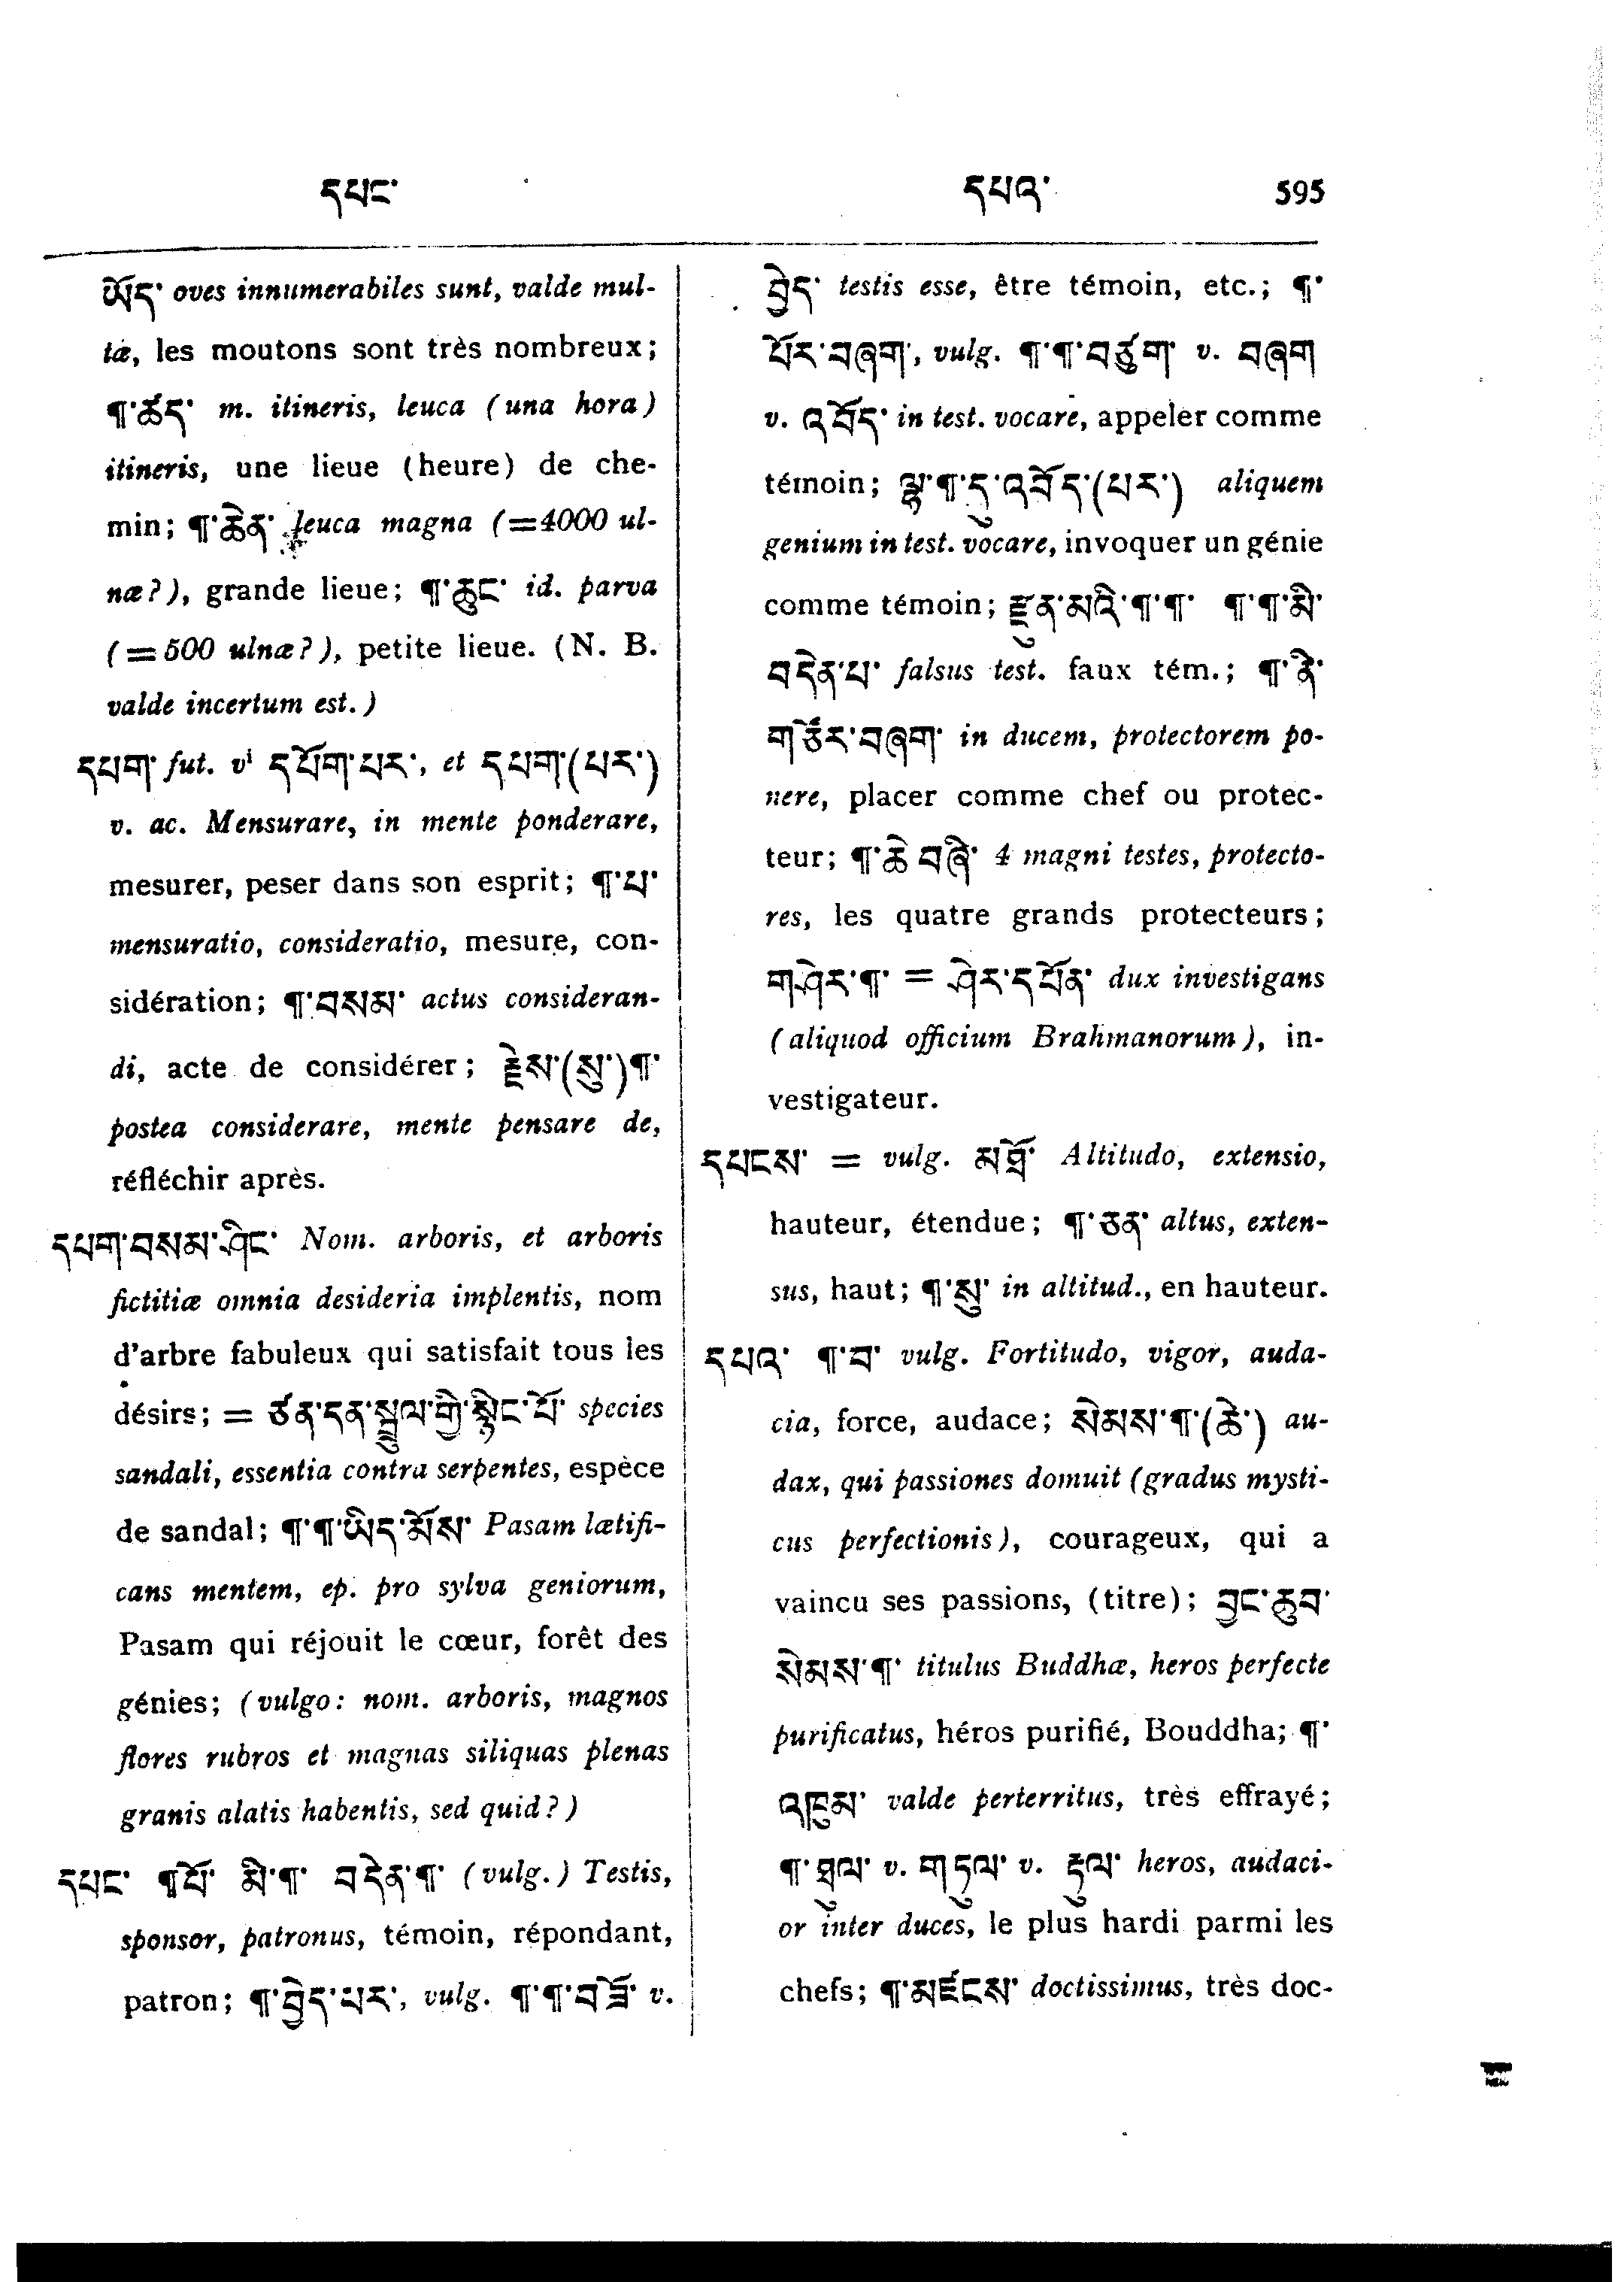 དཔང་ དཔའ་ 595
ཡོད་ oves innumerabiles sunt, valde mul-
tæ, les moutons sont très nombreux;
¶་ཚད་ m. itineris, leuca (una hora)
itineris, une lieue (heure) de che-
min; ¶་ཆེན་ leuca magna (=4000 ul-
næ?), grande lieue; ¶་ཆུང་ id. parva
(=500 ulnæ?), petite lieue. (N. B.
valde incertum est.)
དཔག་ fut. vⁱ དཔོག་པར་, et དཔག་(པར་)
v. ac. Mensurare, in mente ponderare,
mesurer, peser dans son esprit; ¶་པ་
mensuratio, consideratio, mesure, con-
sidération; ¶་བསམ་ actus consideran-
di, acte de considérer; རྗེས་(སུ་)¶་
postea considerare, mente pensare de,
réfléchir après.
དཔག་བསམ་ཤིང་ Nom. arboris, et arboris
fictitiæ omnia desideria implentis, nom
d'arbre fabuleux qui satisfait tous les
désirs; = ཙན་དན་སྦྲུལ་གྱི་སྙིང་པོ་ species
sandali, essentia contra serpentes, espèce
de sandal; ¶་¶་ཡིད་མོས་ Pasam lætifi-
cans mentem, ep. pro sylva geniorum,
Pasam qui réjouit le cœur, forêt des
génies; (vulgo: nom. arboris, magnos
flores rubros et magnas siliquas plenas
granis alatis habentis, sed quid?)
དཔང་ ¶པོ་ མི་¶་ བདེན་¶་ (vulg.) Testis,
sponsor, patronus, témoin, répondant,
patron; ¶་བྱེད་པར་, vulg. ¶་¶་བཟོ་ v.
བྱེད་ testis esse, être témoin, etc.; ¶་
པོར་བཞག་, vulg. ¶་¶་བཙུག་ v. བཞག
v. འབོད་ in test. vocare, appeler comme
témoin; ལྷ་¶་དུ་འབོད་(པར་) aliquem
genium in test. vocare, invoquer un génie
comme témoin; རྫུན་མའི་¶་¶་ ¶་¶་མི་
བདེན་པ་ falsus test. faux tém.; ¶་ནི་
གཙོར་བཞག་ in ducem, protectorem po-
nere, placer comme chef ou protec-
teur; ¶་ཆེ བཞི་ 4 magni testes, protecto-
res, les quatre grands protecteurs;
གཤེར་¶་ = ཤེར་དཔོན་ dux investigans
(aliquod officium Brahmanorum), in-
vestigateur.
དཔངས་ = vulg. མཐོ་ Altitudo, extensio,
hauteur, étendue; ¶་ཅན་ altus, exten-
sus, haut; ¶་སུ་ in altitud., en hauteur.
དཔའ་ ¶་བ་ vulg. Fortitudo, vigor, auda-
cia, force, audace; སེམས་¶་(ཆེ་) au-
dax, qui passiones domuit (gradus mysti-
cus perfectionis), courageux, qui a
vaincu ses passions, (titre); བྱང་ཆུབ་
སེམས་¶་ titulus Buddhæ, heros perfecte
purificatus, héros purifié, Bouddha; ¶་
འཁུམ་ valde perterritus, très effrayé;
¶་ཐུལ་ v. གཏུལ་ v. རྟུལ་ heros, audaci-
or inter duces, le plus hardi parmi les
chefs; ¶་མཛངས་ doctissimus, très doc-